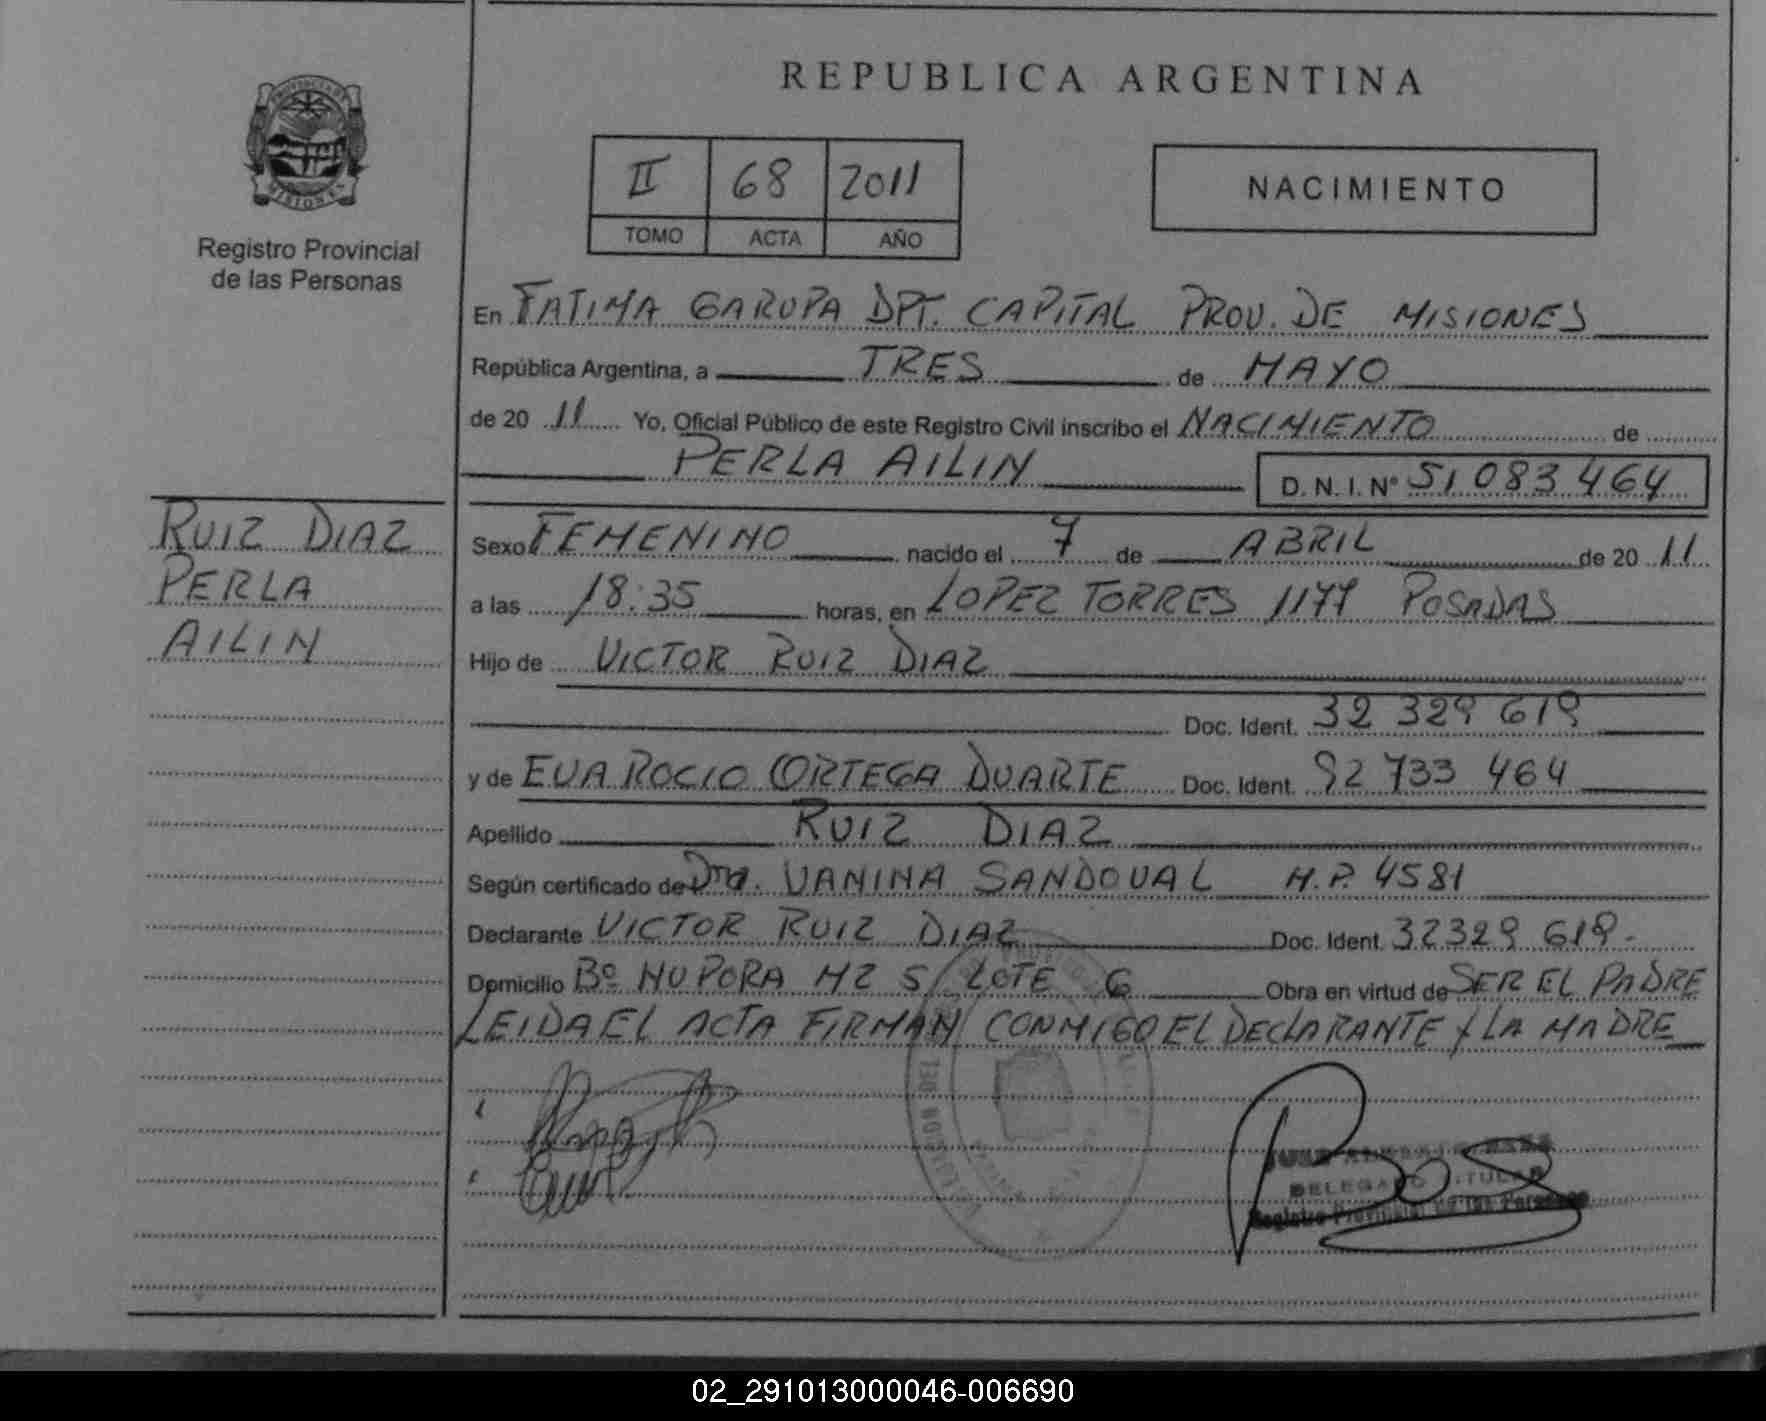 REPUBLICA ARGENTINA
PROVINCIA DE
MISIONES
Registro Provincial
de las Personas
II 68 2011
TOMO ACTA AÑO
NACIMIENTO
En FATIMA GARUPA DPT. CAPITAL PROV. DE MISIONES
República Argentina, a TRES de MAYO
de 20 11 Yo, Oficial Público de este Registro Civil inscribo el NACIMIENTO de
PERLA AILIN D.N.I. Nº 51 083 464
RUIZ DIAZ
PERLA
AILIN
Sexo FEMENINO nacido el 7 de ABRIL de 20 11
a las 18:35 horas, en LOPEZ TORRES 1177 POSADAS
Hijo de VICTOR RUIZ DIAZ
Doc. Ident. 32 329 619
y de EVA ROCIO ORTEGA DUARTE Doc. Ident. 92 733 464
Apellido RUIZ DIAZ
Según certificado de Dra. VANINA SANDOVAL M.P. 4581
Declarante VICTOR RUIZ DIAZ Doc. Ident. 32329 619.-
Domicilio Bº ÑU PORA MZ 5/ LOTE 6 Obra en virtud de SER EL PADRE
LEIDA EL ACTA FIRMAN CONMIGO EL DECLARANTE Y LA MADRE
DELEGADO TITULAR
Registro Provincial de las Personas
02_291013000046-006690